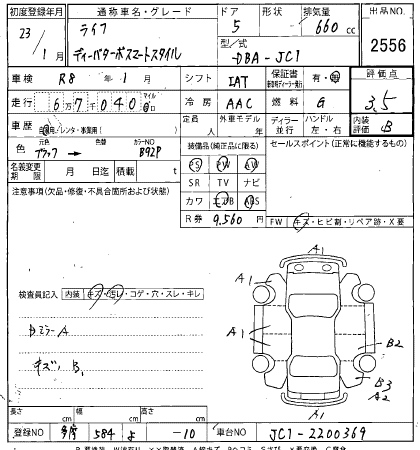 初度登録年月 通称車名・グレード ドア 形状 排気量 出品NO
23年 1月 ライフ 5 660cc 2556
ディーバターボスマートスタイル 型式 DBA-JC1
車検 R8年 1月 シフト IAT 保証書 有・無 評価点
走行 67,040 マイル 冷房 AAC 燃料 G 3.5
車歴 自家用/レンタ・事業用( ) 定員 人 外車モデル 年 ディラー 並行 ハンドル 左・右 内装評価 B
色 元色 ブラック 色替 カラーNO B92P 装備品(純正品に限る) セールスポイント(正常に機能するもの)
名義変更期限 月 日迄 積載 t PS PW AW
注意事項(欠品・修復・不具合箇所および状態) SR TV ナビ
カワ エアB ABS
R券 9,560円 FW キズ・ヒビ割・リペア跡・X要
A1
検査員記入 内装 キズ・汚レ・コゲ・穴・スレ・キレ A1 A1
ミラーA A1
キズ B1 B2
B3
A2
長さ cm 幅 cm 高さ cm A1
登録NO 多摩 584 よ -10 車台NO JC1-2200369